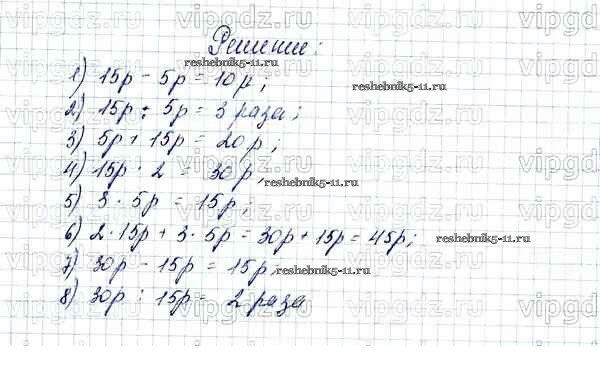 Решение:
1) 15р - 5р = 10р;
2) 15р : 5р = 3 раза;
3) 5р + 15р = 20р;
4) 15р · 2 = 30р,
5) 3 · 5р = 15р;
6) 2 · 15р + 3 · 5р = 30р + 15р = 45р;
7) 30р - 15р = 15р;
8) 30р : 15р = 2 раза
reshebnik5-11.ru
reshebnik5-11.ru
reshebnik5-11.ru
reshebnik5-11.ru
reshebnik5-11.ru
vipgdz.ru